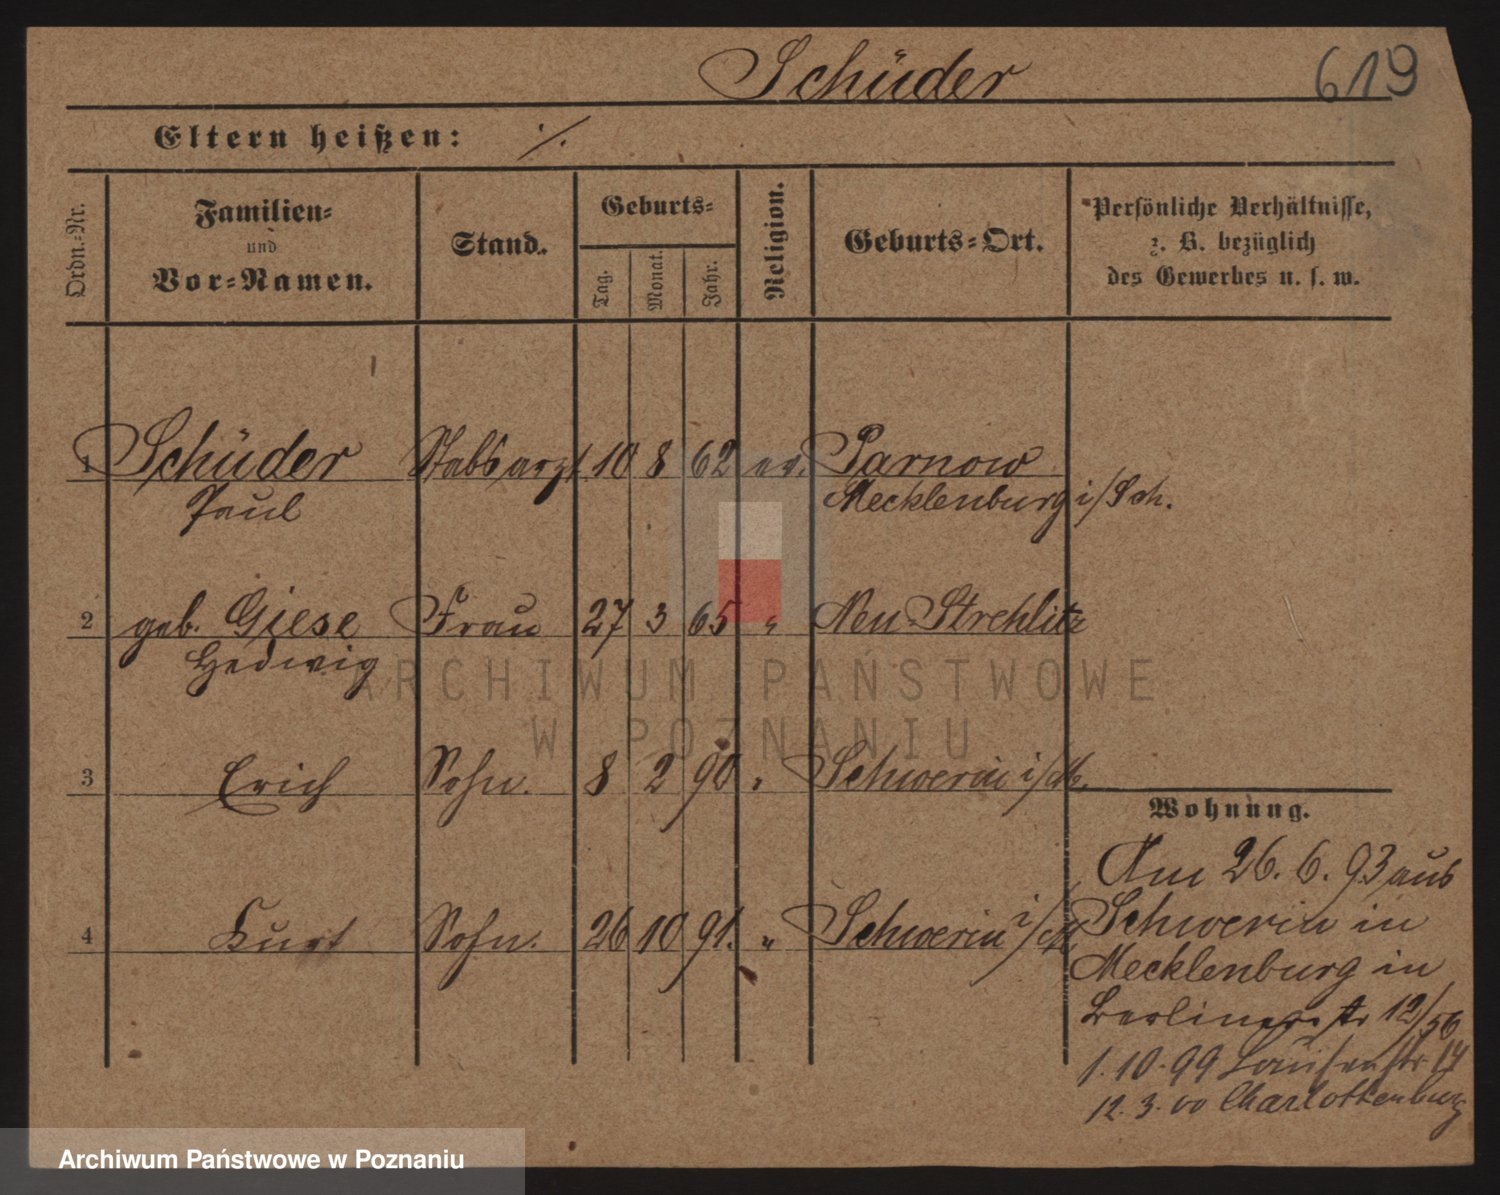 Schüder 619
Eltern heißen: ·/.
Ordn.-Nr.
Familien-
und
Vor-Namen.
Stand.
Geburts-
Tag.
Monat.
Jahr.
Religion.
Geburts-Ort.
Persönliche Verhältnisse,
z. B. bezüglich
des Gewerbes u. s. w.
1 Schüder Stabsarzt 10 8 62 ev. Parnow
Paul Mecklenburg i/Sch.
2 geb. Giese Frau 27 3 65 " Neu-Strehlitz
Hedwig
ARCHIWUM PAŃSTWOWE
W POZNANIU
3 Erich Sohn. 8 2 90 " Schwerin i/M.
4 Kurt Sohn. 26 10 91. " Schwerin i/M.
Wohnung.
Am 26. 6. 93 aus
Schwerin in
Mecklenburg in
Berlinerstr 12/56
1. 10. 99 Louisenstr 14
12. 3. 00 Charlottenburg
Archiwum Państwowe w Poznaniu